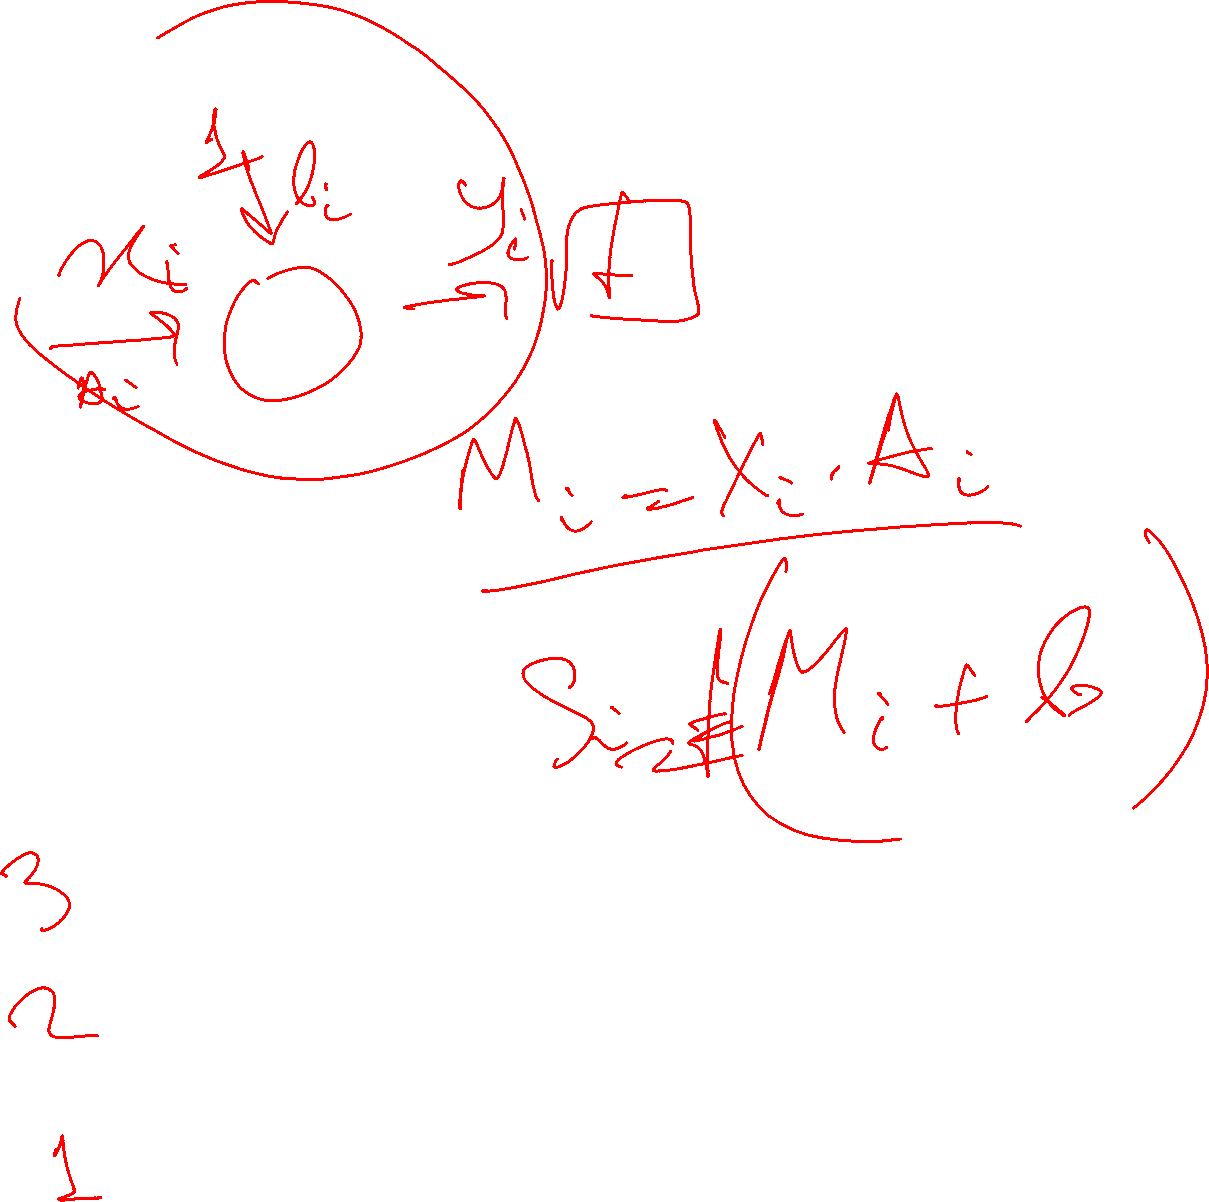 1 b_i
x_i y_i t
A_i
M_i = X_i . A_i
S_i = (M_i + b)
3
2
1